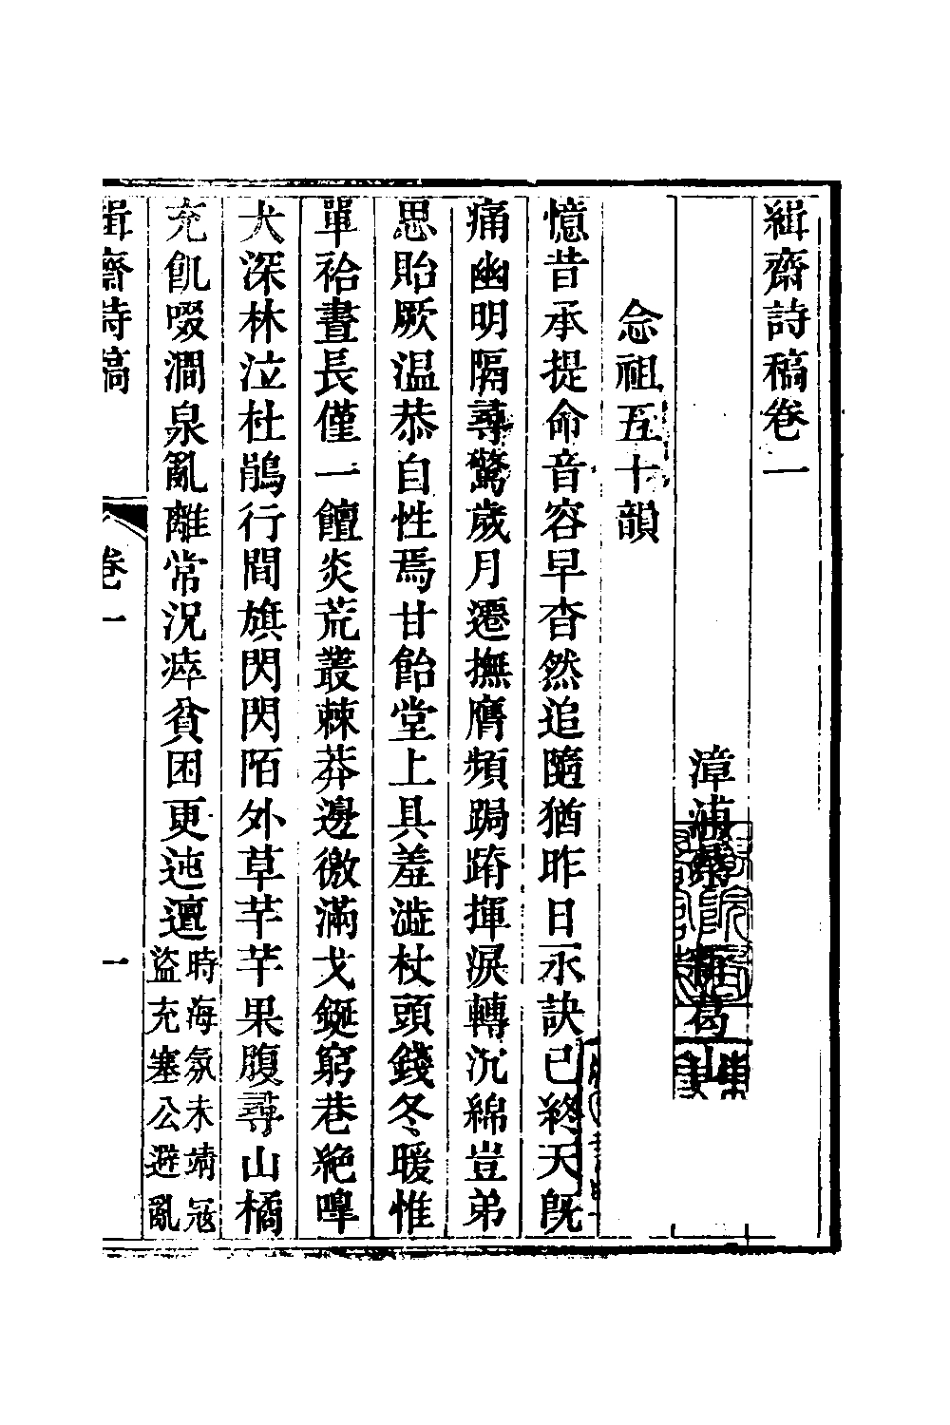 緝齋詩稿卷一
漳浦蔡 新葛山
念祖五十韻
憶昔承提命音容早杳然追隨猶昨日永訣已終天旣
痛幽明隔尋驚歲月遷撫膺頻跼蹐揮淚轉沉綿豈弟
思貽厥温恭自性焉甘飴堂上具羞澁杖頭錢冬暖惟
單袷晝長僅一饘炎荒叢棘莽邊徼滿戈鋋窮巷絶嘷
犬深林泣杜鵑行間旗閃閃陌外草芊芊果腹尋山橘
充飢啜澗泉亂離常況瘁貧困更迍邅時海氛未靖寇
盜充塞公避亂
緝齋詩稿
卷一
一